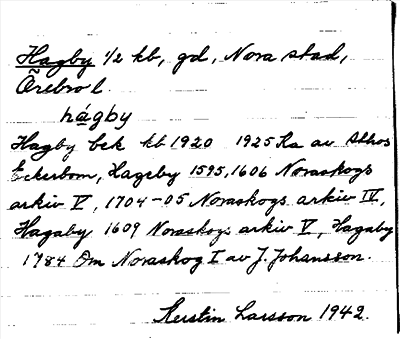 Hagby 1/2 kb, gd, Nora stad,
Örebro l.
hàgby
Hagby bek kb 1920 1925 Ka av Athos
Eckerbom, Hageby 1595, 1606 Noraskogs
arkiv V, 1704-05 Noraskogs arkiv IV,
Hagaby 1609 Noraskogs arkiv V, Hagaby
1784 Om Noraskog I av J. Johansson.
Kerstin Larsson 1942.